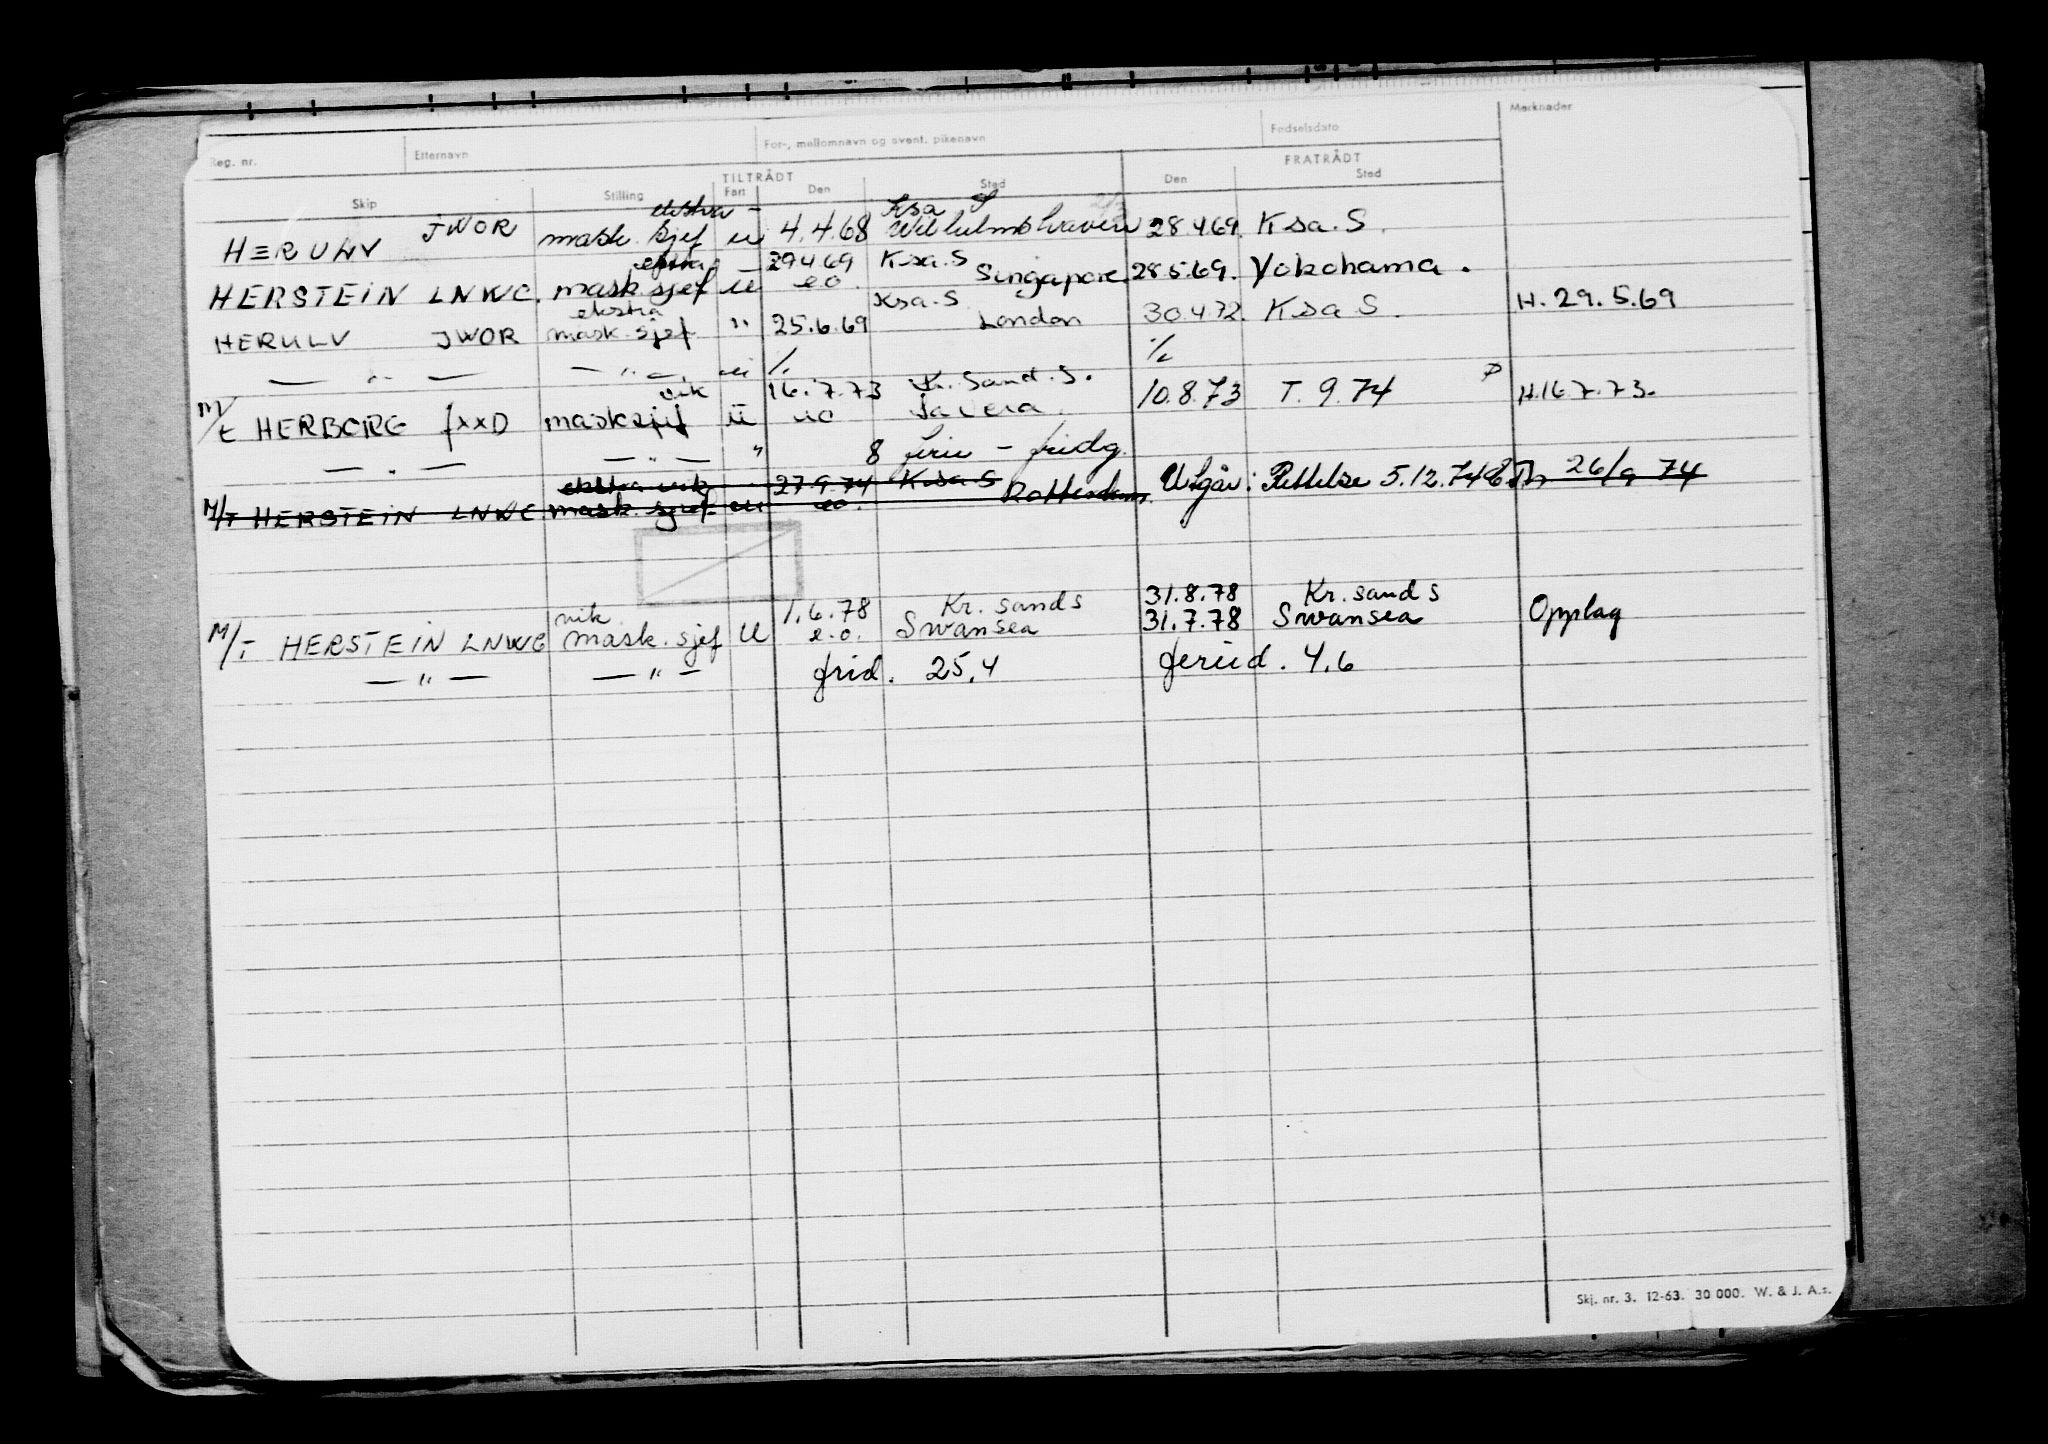 Reg. nr. Etternavn For-, mellomnavn og event. pikenavn Fødselsdato Merknader
TILTRÅDT FRATRÅDT
Skip Stilling Fart Den Sted Den Sted
ekstra - Ksa S
HERULV JWOR mask. sjef u 4.4.68 Wilhelmshaven 28 4 69. Ksa. S.
ekstra 29 4 69 Ksa. S
HERSTEIN LNWC. mask. sjef u eo. Singapore 28.5.69. Yokohama.
ekstra Ksa. S
HERULV JWOR mask. sjef " 25.6.69 London 30.4.72. Ksa S. H. 29.5.69
— " — — " — u /. /.
vik 16.7.73 Kr. Sand. S.
M/T HERBORG JXXD mask sjef u eo Lavera. 10.8.73 T. 9.74 H.16.7.73.
— " — — " — " 8 ferie - fridg.
ekstra vik 27.9.74 Ksa S
M/T HERSTEIN LNWC mask. sjef u eo. Rotterdam. Utgår: Rettelse 5.12.74 26/9 74
vik. 1.6.78 Kr. sands 31.8.78 Kr. sand s
M/T HERSTEIN LNWC mask. sjef U e.o. Swansea 31.7.78 Swansea Opplag
— " — — " — frid. 25,4 feried. 4,6
Skj. nr. 3. 12-63. 30 000. W. & J. A.s.